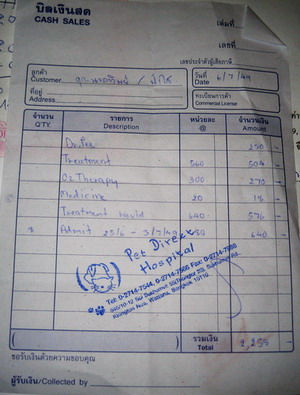 บิลเงินสด
CASH SALES
เล่มที่
เลขที่
เลขประจำตัวผู้เสียภาษี
ลูกค้า
Customer
วันที่ 6/7/49
Date
ที่อยู่
Address
ทะเบียนการค้า
Commercial License
จำนวน รายการ หน่วยละ จำนวนเงิน
QTY. Description @ Amount
Dr. Fee 250 -
Treatment 560 504 -
O2 Therapy 300 270 -
Medicine 20 -
Treatment 640 576 -
Admit 640 -
Pet Direct
Hospital
Bangkok 10110
รวมเงิน
Total 2,255 -
ขอรับเงินด้วยความขอบคุณ
ผู้รับเงิน/Collected by